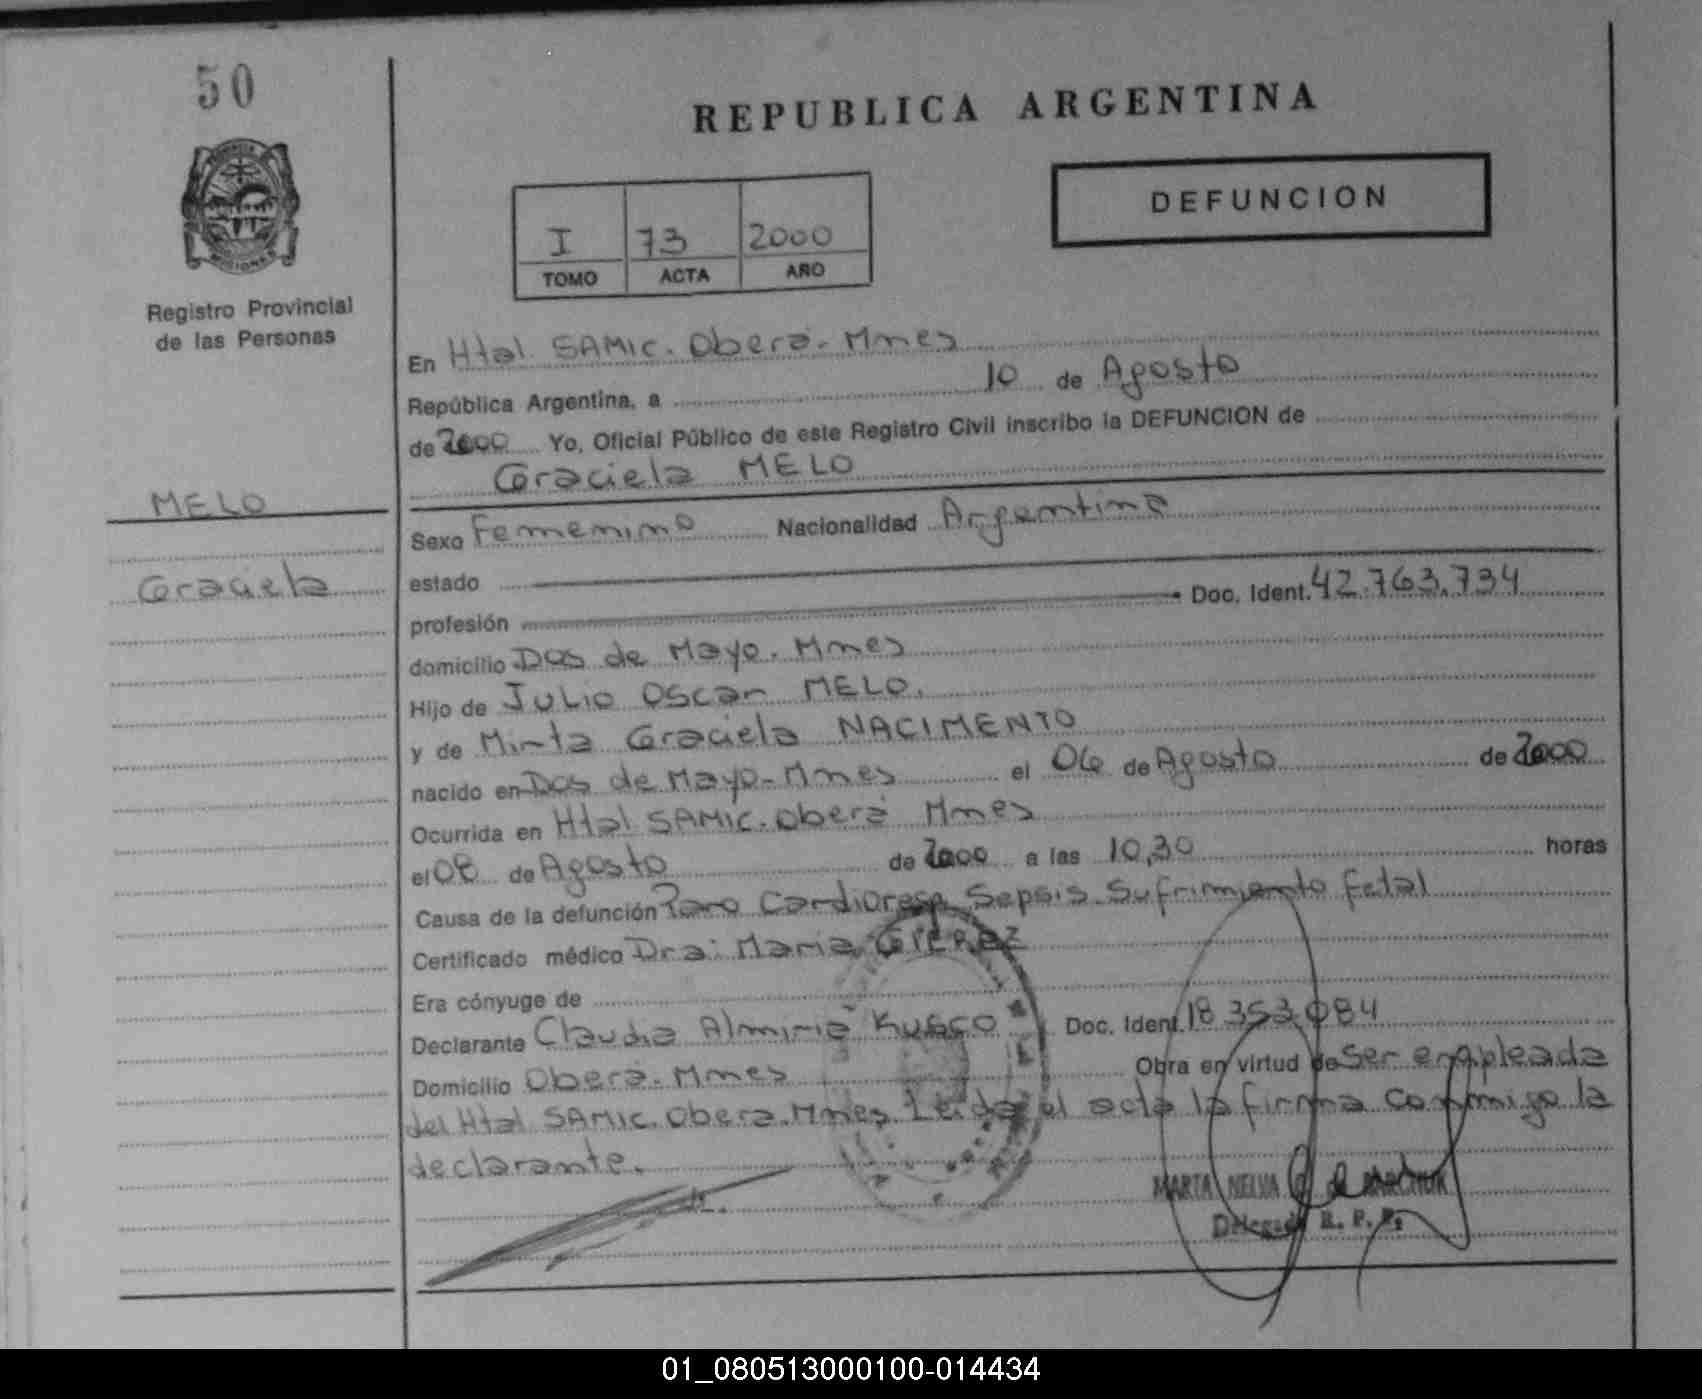 50
REPUBLICA ARGENTINA
DEFUNCION
I 73 2000
TOMO ACTA AÑO
PROVINCIA DE
MISIONES
Registro Provincial
de las Personas
En Htal. SAMIC. Oberá. Mnes
República Argentina, a 10 de Agosto
de 2000 Yo, Oficial Público de este Registro Civil inscribo la DEFUNCION de
Graciela MELO
MELO
Graciela
Sexo Femenino Nacionalidad Argentina
estado
profesión Doc. Ident. 42.763.734
domicilio Dos de Mayo. Mnes
Hijo de Julio Oscar MELO.
y de Mirta Graciela NACIMENTO
nacido en Dos de Mayo-Mnes el 06 de Agosto de 2000
Ocurrida en Htal SAMIC. Oberá Mnes
el 08 de Agosto de 2000 a las 10,30 horas
Causa de la defunción Paro Cardioresp. Sepsis. Sufrimiento fetal
Certificado médico Dra: Maria
Era cónyuge de
Declarante Claudia Almiria Doc. Ident. 18.353.084
Domicilio Oberá. Mnes Obra en virtud de Ser empleada
del Htal SAMIC. Oberá. Mnes Leída el acta la firma conmigo la
declarante.
MARTA NELVA
Delegada R. P. P.
01_080513000100-014434